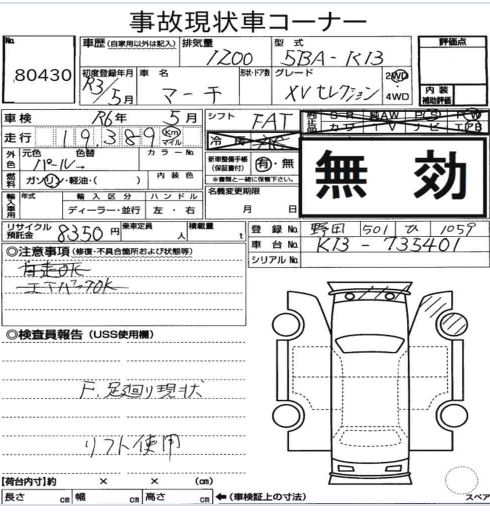 事故現状車コーナー
No. 80430
車歴 (自家用以外は記入) 排気量 1200 型式 5BA-K13 評価点
初度登録年月 R3/5月 車名 マーチ 形状・ドア数 グレード XVセレクション 2WD・4WD 内装補助評価
車検 R6年 5月 シフト FAT
走行 19,389 Km マイル 冷房
外装色 元色 パール 色替 → カラーNo. 新車整備手帳(保証書付) 有・無
※書類と一緒に保管して下さい。
燃料 ガソリン・軽油・( ) 内装色 名義変更期限 月 日
輸入車用 年式 輸入区分 ディーラー・並行 ハンドル 左・右
無効
リサイクル預託金 8350円 乗車定員 人 積載量 t
登録No. 野田 501 ひ 1059
車台No. K13-735401
シリアルNo.
◎注意事項 (修復・不具合箇所および状態等)
自走OK
エアバックOK
◎検査員報告 (USS使用欄)
F.足廻り現状
リフト使用
【荷台内寸】約 × × (cm)
長さ cm 幅 cm 高さ cm ←(車検証上の寸法) スペア